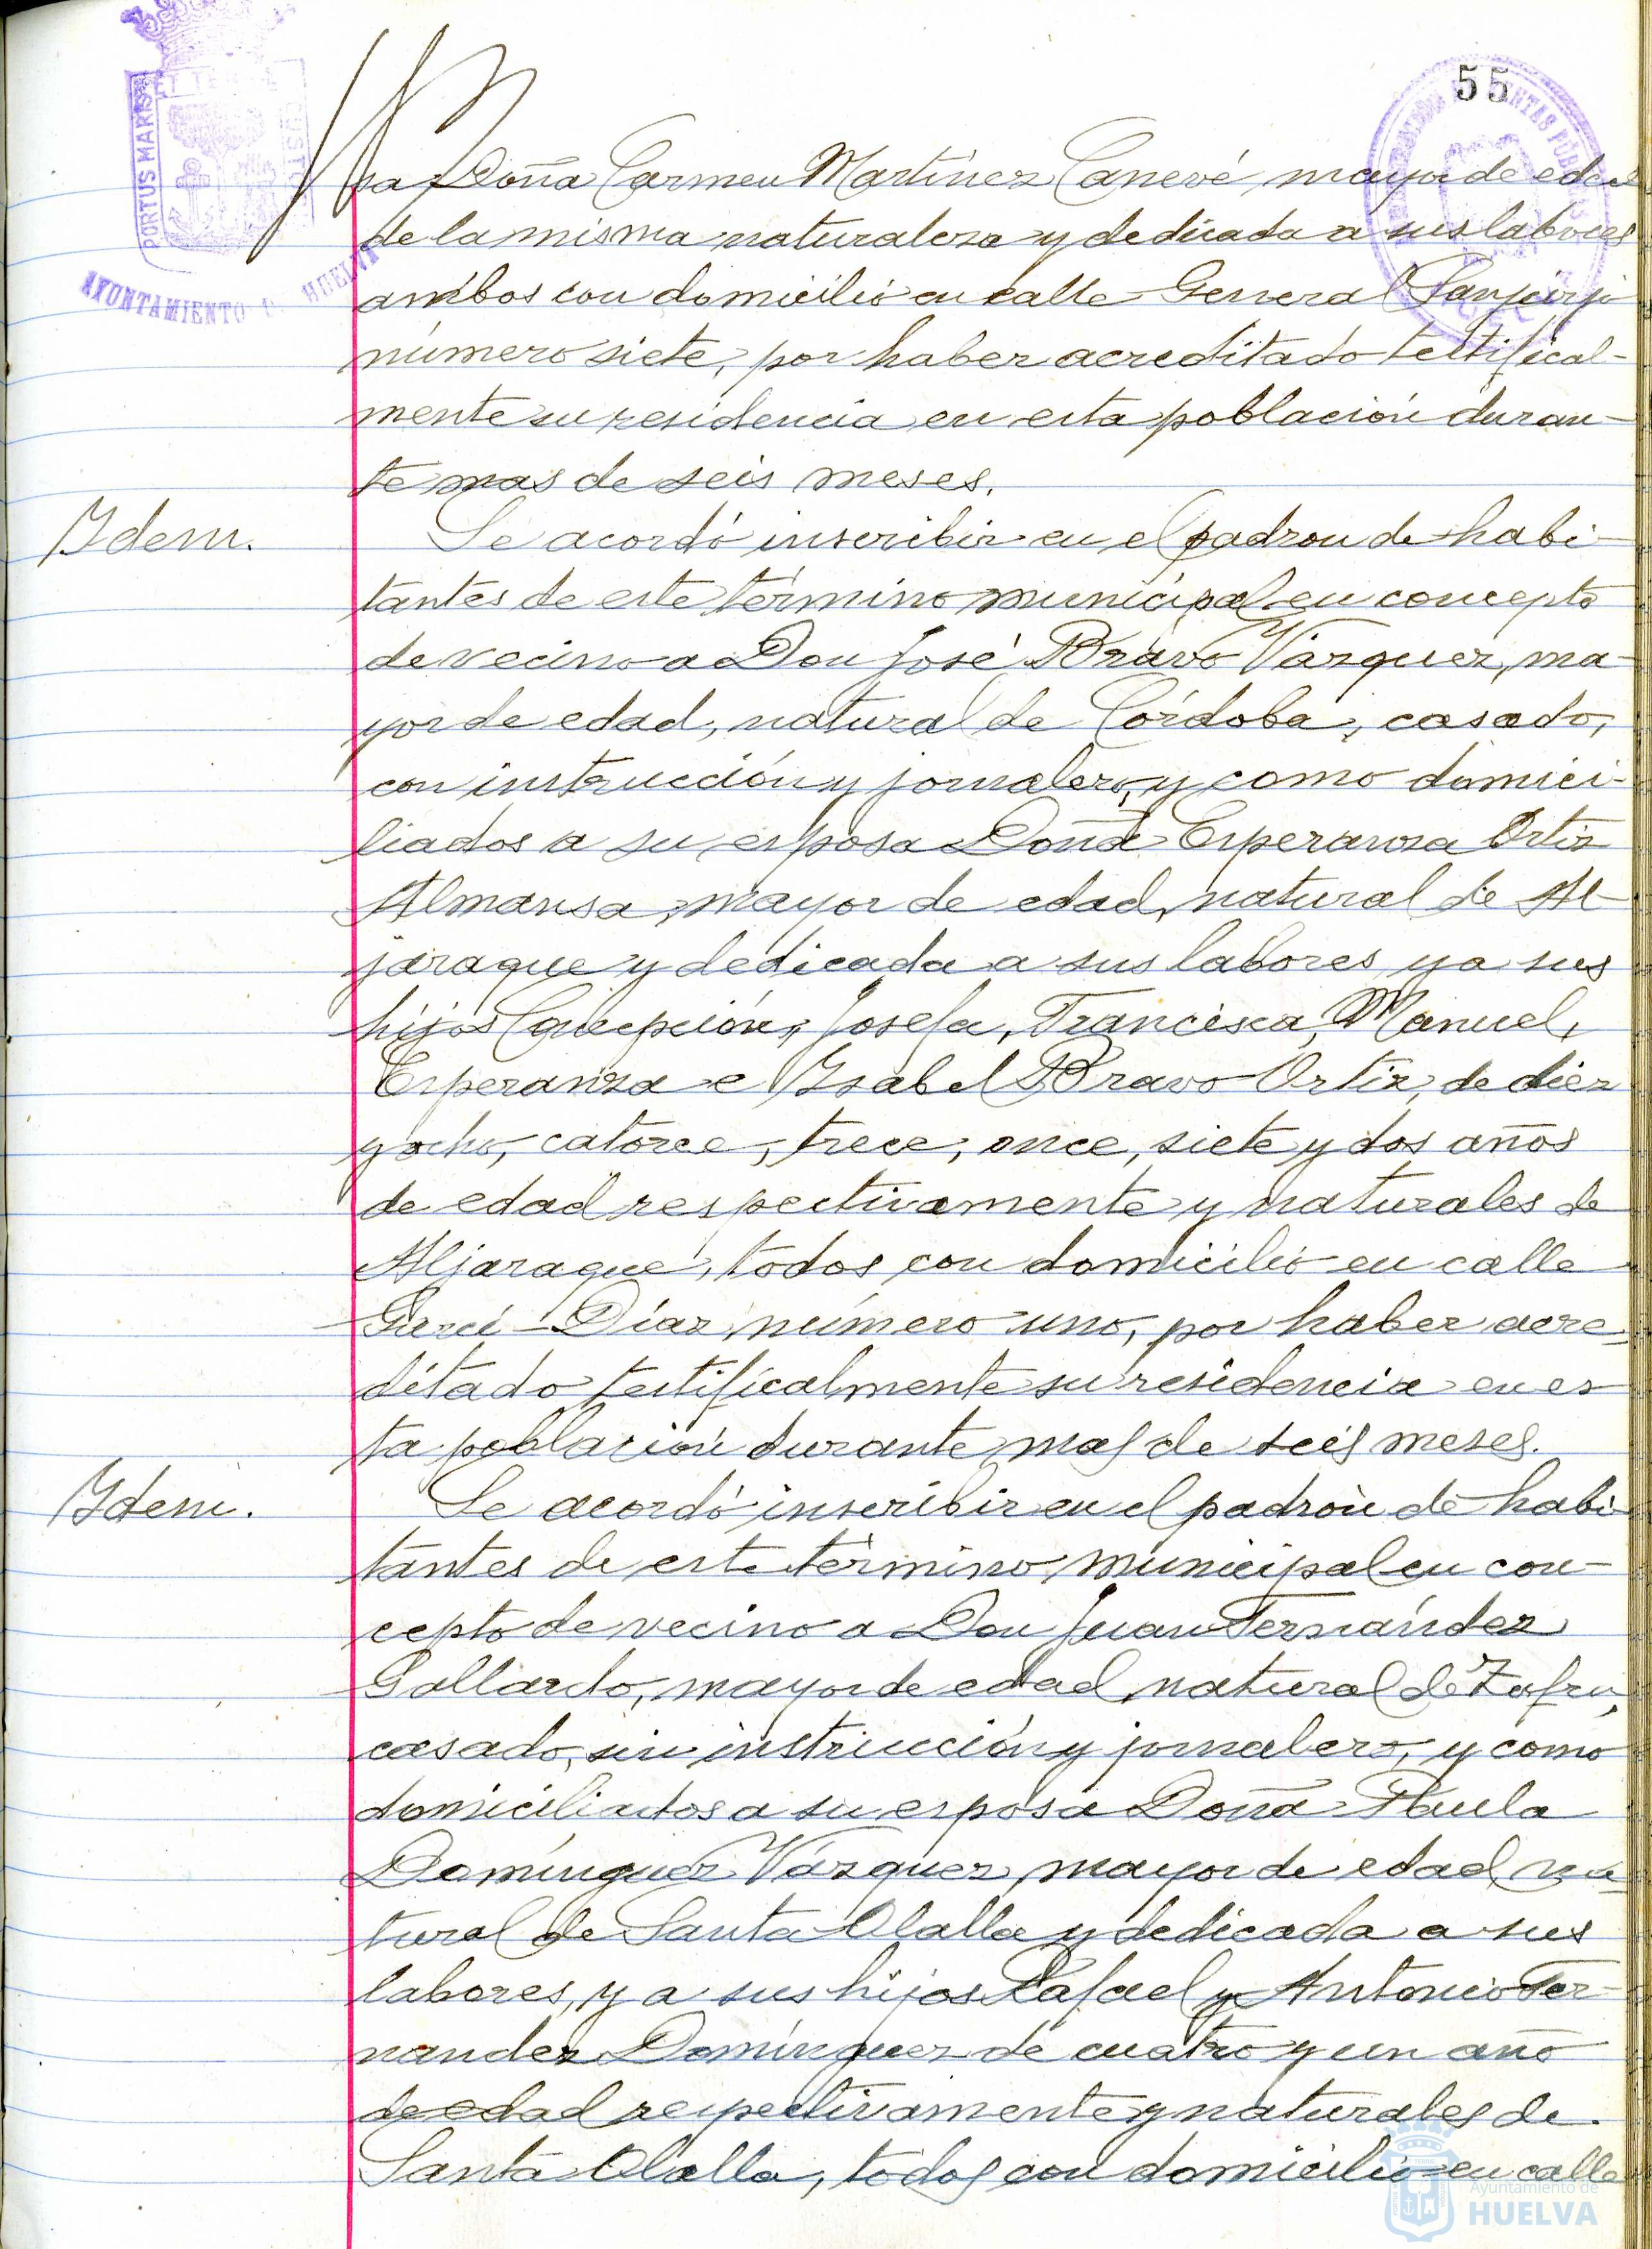 55
PORTUS MARIS ET TERRAE CUSTODIA
AYUNTAMIENTO DE HUELVA
sa Doña Carmen Martínez Canevé, mayor de edad
de la misma naturaleza y dedicada a sus labores
ambos con domicilio en calle General Sanjurjo
número siete, por haber acreditado testifical-
mente su residencia en esta población duran-
te mas de seis meses.
Idem.
Se acordó inscribir en el padron de habi-
tantes de este término municipal en concepto
de vecino a Don José Bravo Vázquez, ma-
yor de edad, natural de Córdoba, casado,
con instrucción y jornalero, y como domici-
liados a su esposa Doña Esperanza Ortiz
Almansa, mayor de edad, natural de Al-
jaraque y dedicada a sus labores y a sus
hijos Concepción, Josefa, Francisca, Manuel,
Esperanza e Ysabel Bravo Ortiz, de diez
y ocho, catorce, trece, once, siete y dos años
de edad respectivamente y naturales de
Aljaraque, todos con domicilio en calle
Garci-Díaz número uno, por haber acre-
ditado testificalmente su residencia en es-
ta población durante mas de seis meses.
Idem.
Se acordó inscribir en el padrón de habi-
tantes de este término municipal en con-
cepto de vecino a Don Juan Fernández
Gallardo, mayor de edad, natural de Zafra,
casado, sin instrucción y jornalero, y como
domiciliados a su esposa Doña Paula
Domínguez Vázquez, mayor de edad, na-
tural de Santa Olalla y dedicada a sus
labores, y a sus hijos Rafael y Antonio Fer-
nandez Domínguez de cuatro y un año
de edad respectivamente y naturales de
Santa Olalla, todos con domicilio en calle
Ayuntamiento de
HUELVA